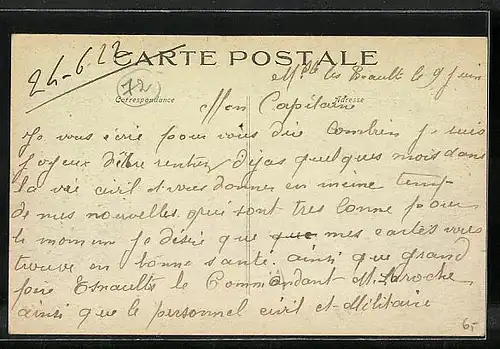 24-6.22
CARTE POSTALE
72
les le 9 Juin
Correspondance
Adresse
Mon Capitaine
Je vous écrie pour vous dire combien je suis
Joyeux d'être rentrer dejas quelques mois dans
la vie civil et vous donner en meme temp-
de mes nouvelles. qui sont tres bonne pour
le momun Je désire que que mes cartes vous
trouve en bonne santé. ainsi que grand
pire Esnaults le Commandant M. Laroche
ainsi que le personnel civil et Militaire
6-